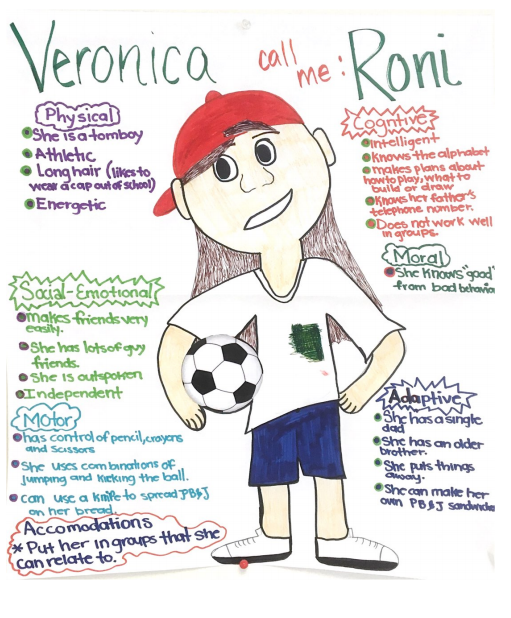 Veronica call me: Roni
Physical
She is a tomboy
Athletic
Long hair (likes to
wear a cap out of school)
Energetic
Cogntive
Intelligent
Knows the alphabet
makes plans about
how to play, what to
build or draw
Knows her father's
telephone number.
Does not work well
in groups.
Moral
She knows "good"
from bad behavio
Social-Emotional
makes friends very
easily.
She has lots of guy
friends.
She is outspoken
Independent
Motor
has control of pencil, crayons
and scissors
She uses combinations of
jumping and kicking the ball.
can use a knife to spread PB&J
on her bread.
Adaptive
She has a single
dad
She has an older
brother.
She puts things
away.
She can make her
own PB&J sandwich
Accomodations
* Put her in groups that she
can relate to.